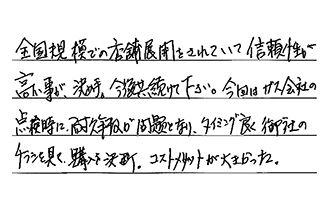 全国規模での店舗展開をされていて信頼性が
高い事が、決め手。今後共続けて下さい。今回はガス会社の
点検時に耐久年数が問題となり、タイミング良く御社の
チラシを見て、購入を決断。コストメリットが大きかった。